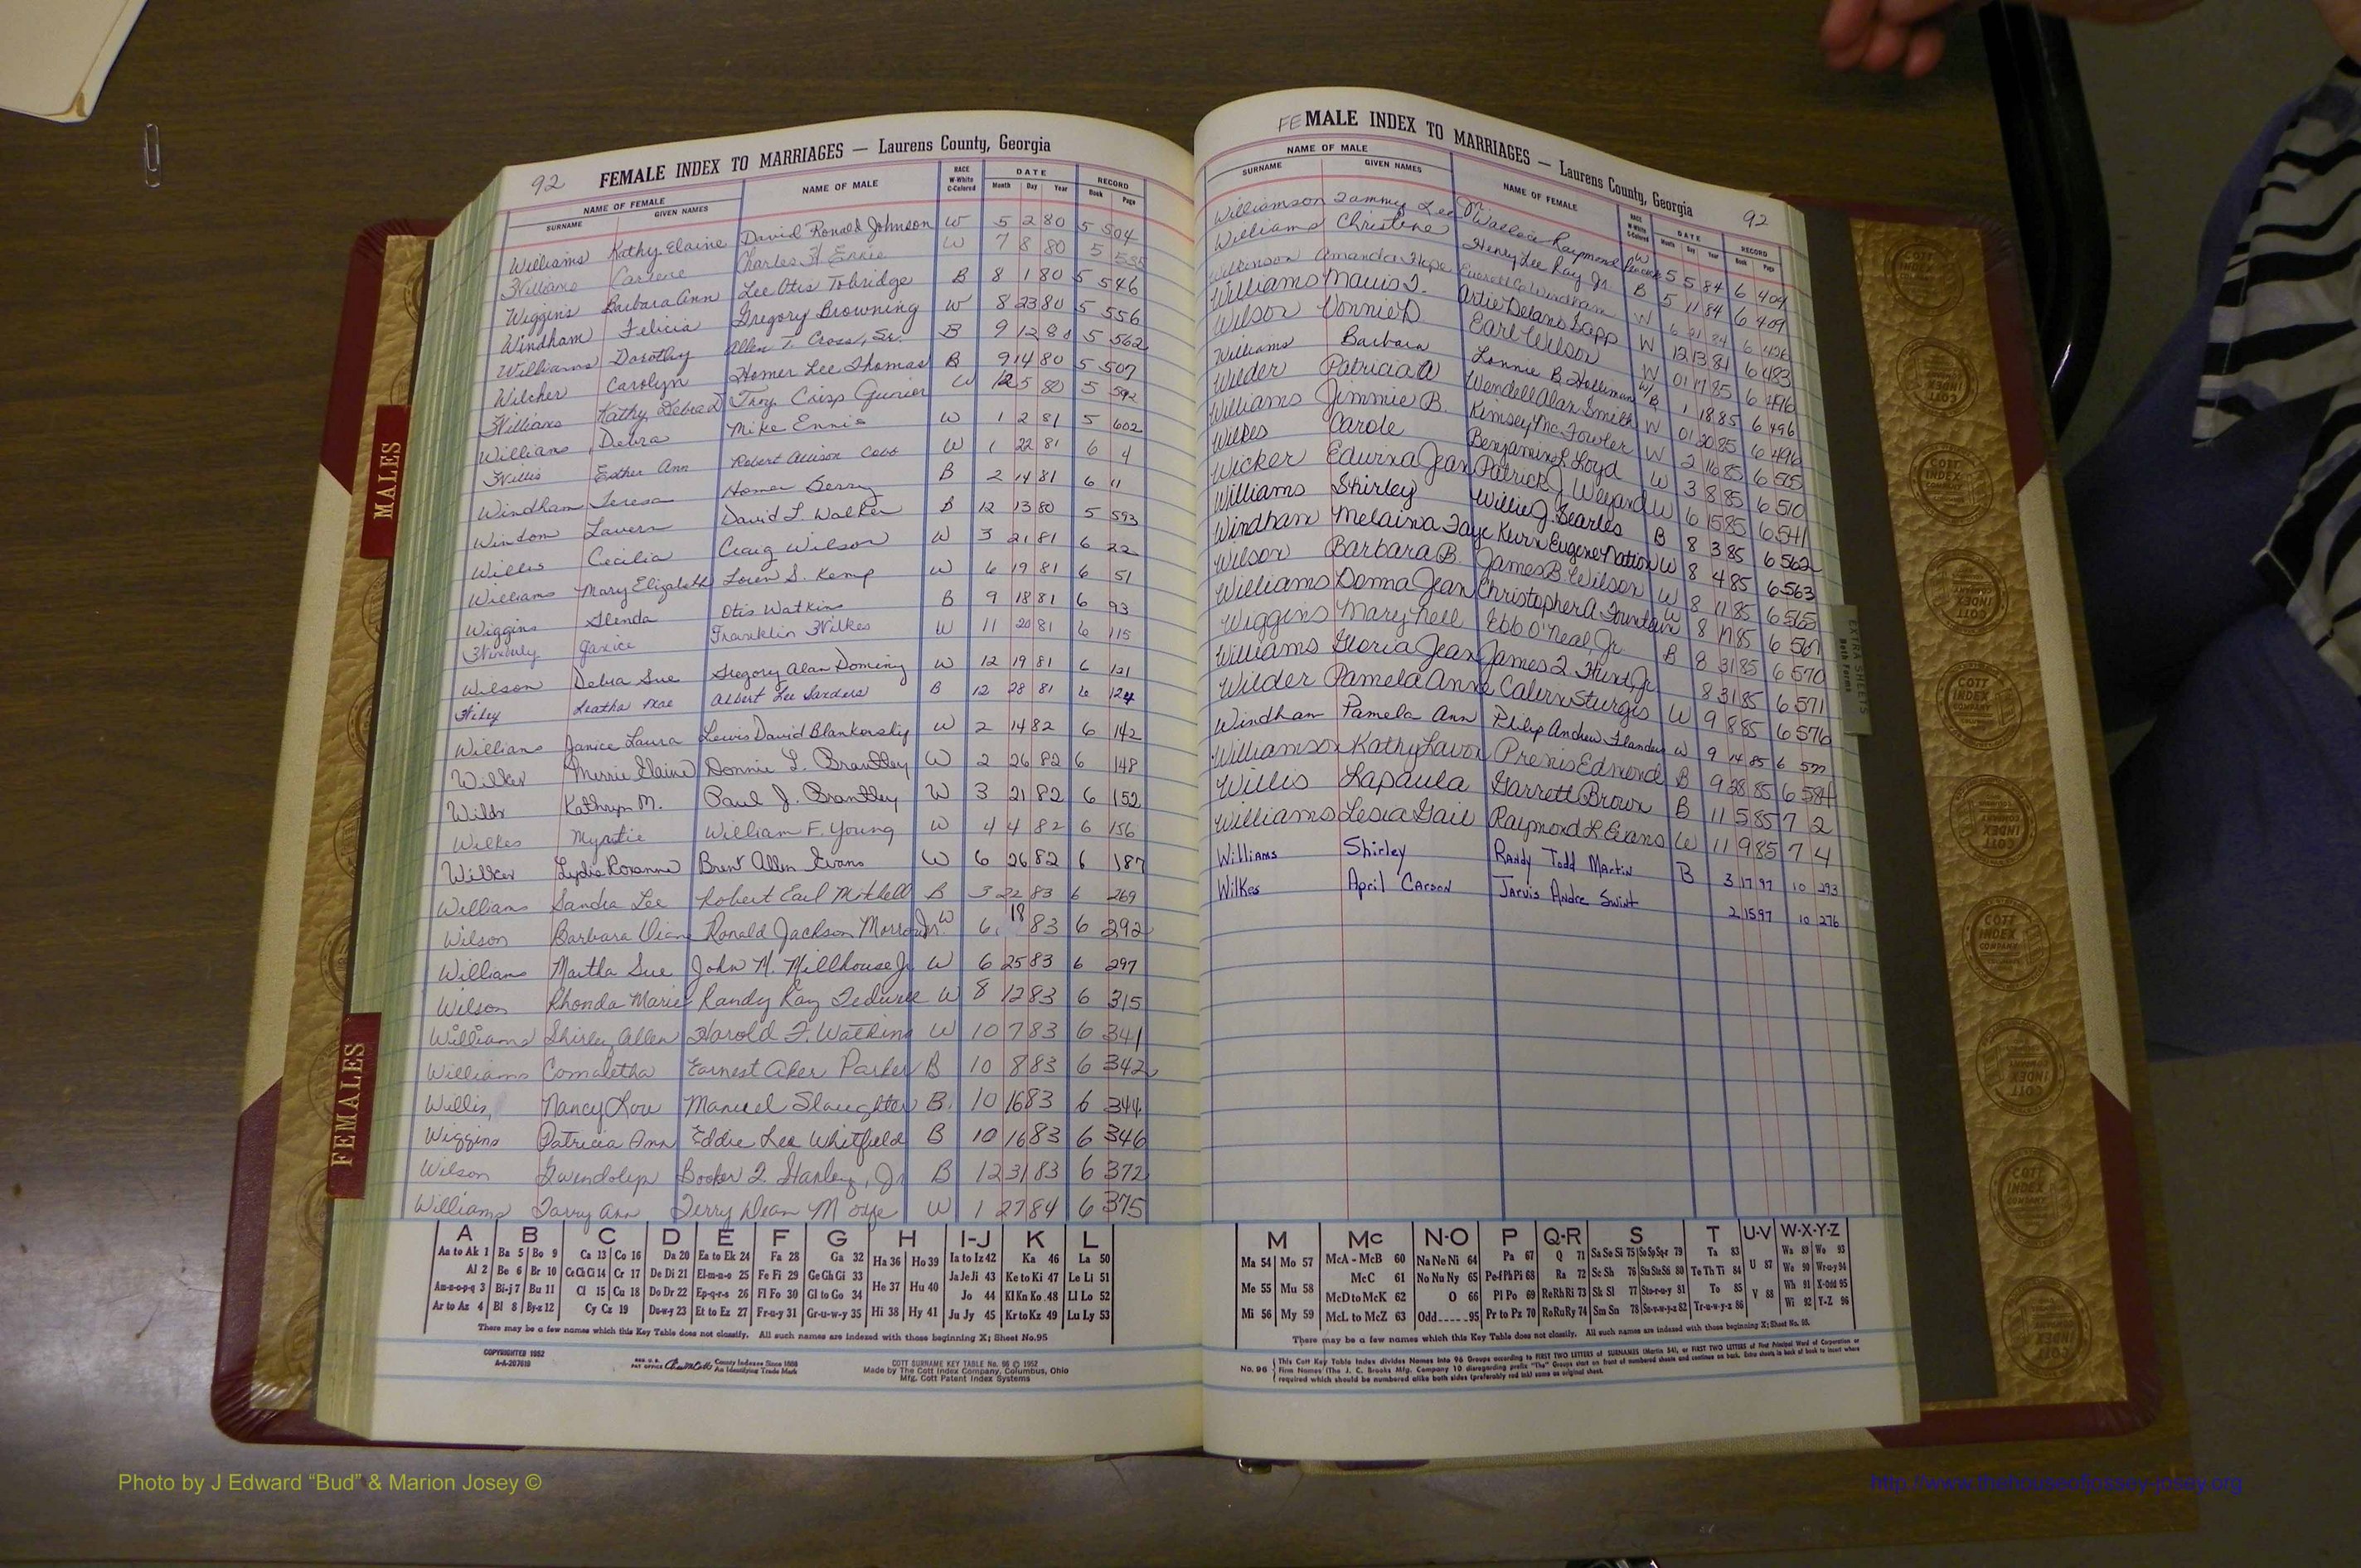 92 FEMALE INDEX TO MARRIAGES — Laurens County, Georgia
NAME OF FEMALE NAME OF MALE RACE W-White C-Colored DATE RECORD
SURNAME GIVEN NAMES Month Day Year Book Page
Williams Kathy Elaine David Ronald Johnson W 5 2 80 5 504
Williams Carlene Charles H. Ennie W 7 8 80 5 535
Wiggins Barbara Ann Lee Otis Tobridge B 8 1 80 5 546
Windham Felicia Gregory Browning W 8 23 80 5 556
Williams Dorothy Allen T. Cross, Sr. B 9 12 80 5 562
Wilcher Carolyn Homer Lee Thomas B 9 14 80 5 507
Williams Kathy Debra Troy Crisp W 12 5 80 5 592
Williams Debra Mike Ennis W 1 2 81 5 602
Willis Esther Ann Robert Allison Cobb W 1 22 81 6 4
Windham Teresa Homer Berry B 2 14 81 6 11
Windom Lavern David L. Walker B 12 13 80 5 593
Willis Cecilia Craig Wilson W 3 21 81 6 22
Williams Mary Elizabeth Loren S. Kemp W 6 19 81 6 51
Wiggins Glenda Otis Watkins B 9 18 81 6 93
Janice Franklin Wilkes W 11 20 81 6 115
Wilson Debra Sue Gregory Alan Dominy W 12 19 81 6 121
Wiley Leatha Mae Albert Lee Sanders B 12 28 81 6 124
Williams Janice Laura Lewis David Blankensly W 2 14 82 6 142
Wilker Merrie Elaine Donnie L. Brantley W 2 26 82 6 148
Wilds Kathryn M. Paul J. Brantley W 3 21 82 6 152
Wilkes Myrtie William F. Young W 4 4 82 6 156
Wilker Lydia Roxanne Brent Allen Evans W 6 26 82 6 187
Williams Sandra Lee Robert Earl Mitchell B 3 22 83 6 269
Wilson Barbara Dian Ronald Jackson Morrow Jr. W 6 18 83 6 292
Williams Martha Sue John M. Millhouse Jr W 6 25 83 6 297
Wilson Rhonda Marie Randy Ray W 8 12 83 6 315
Williams Shirley Allen Harold F. Watkins W 10 7 83 6 341
Williams Comaletha Earnest Aker Parker B 10 8 83 6 342
Willis, Nancy Lou Manuel Slaughter B. 10 16 83 6 344
Wiggins Patricia Ann Eddie Lee Whitfield B 10 16 83 6 346
Wilson Gwendolyn Booker T. Stanley, Jr B 12 31 83 6 372
Williams Tarry Ann Terry Dean W 1 27 84 6 375
A B C D E F G H I-J K L
Aa to Ak 1 Ba 5 Bo 9 Ca 13 Co 16 Da 20 Ea to Ek 24 Fa 28 Ga 32 Ha 36 Ho 39 Ia to Iz 42 Ka 46 La 50
Al 2 Be 6 Br 10 Ce Ch Ci 14 Cr 17 De Di 21 El-m-n-o 25 Fe Fi 29 Ge Gh Gi 33 He 37 Hu 40 Ja Je Ji 43 Ke to Ki 47 Le Li 51
Am-n-o-p-q 3 Bi-j 7 Bu 11 Cl 15 Cu 18 Do Dr 22 Ep-q-r-s 26 Fl Fo 30 Gl to Go 34 Jo 44 Kl Kn Ko 48 Ll Lo 52
Ar to Az 4 Bl 8 By-z 12 Cy Cz 19 Du-w-y 23 Et to Ez 27 Fr-u-y 31 Gr-u-w-y 35 Hi 38 Hy 41 Ju Jy 45 Kr to Kz 49 Lu Ly 53
There may be a few names which this Key Table does not classify. All such names are indexed with those beginning X; Sheet No. 95
COPYRIGHTED 1952
A-A-207619
REG. U.S. PAT OFFICE County Indexes Since 1888
An Identifying Trade Mark
COTT SURNAME KEY TABLE No. 96 © 1952
Made by The Cott Index Company, Columbus, Ohio
Mfg. Cott Patent Index Systems
FEMALE INDEX TO MARRIAGES — Laurens County, Georgia 92
NAME OF MALE NAME OF FEMALE RACE W-White C-Colored DATE RECORD
SURNAME GIVEN NAMES Month Day Year Book Page
Williamson Tammy Lee Wallace Raymond W 5 5 84 6 404
Williams Christene Henry Lee Ray Jr. B 5 11 84 6 409
Wilkinson Amanda Hope Everett C Windham W 6 21 84 6 426
Williams Mavis T. Artie Delano Sapp W 12 13 84 6 483
Wilson Vonnie D Earl Wilson W 01 17 85 6 496
Williams Barbara Lonnie B. Holliman W/B 1 18 85 6 496
Wilder Patricia A Wendell Alan Smith W 01 20 85 6 496
Williams Jimmie B. Kimsey Mc. Fowler W 2 16 85 6 505
Wilkes Carole Benjamin L Loyd W 3 8 85 6 510
Wicker Edwina Jean Patrick J Weyand W 6 15 85 6 541
Williams Shirley Willie J. Searles B 8 3 85 6 562
Windham Melaina Faye Kevin Eugene Nation W 8 4 85 6 563
Wilson Barbara B. James B Wilson W 8 11 85 6 565
Williams Donna Jean Christopher A Fountain W 8 17 85 6 567
Wiggins Mary Nell Ebb O'Neal, Jr. B 8 31 85 6 570
Williams Gloria Jean James L. Hunt, Jr. 8 31 85 6 571
Wilder Pamela Anne Calvin Sturgis W 9 8 85 6 576
Windham Pamela Ann Philip Andrew Flanders W 9 14 85 6 577
Williamson Kathy Lavon Prenis Edmond B 9 28 85 6 584
Willis Lapaula Garrett Brown B 11 5 85 7 2
Williams Lesia Gail Raymond L. Evans W 11 9 85 7 4
Williams Shirley Randy Todd Martin B 3 17 97 10 293
Wilkes April Carson Jarvis Andre Swint 2 15 97 10 276
M Mc N-O P Q-R S T U-V W-X-Y-Z
Ma 54 Mo 57 McA - McB 60 Na Ne Ni 64 Pa 67 Q 71 Sa Se Si 75 So Sp Sq-r 79 Ta 83 U 87 Wa 89 Wo 93
McC 61 No Nu Ny 65 Pe-f Ph Pi 68 Ra 72 Sc Sh 76 Sta Ste Sti 80 Te Th Ti 84 We 90 Wr-u-y 94
Me 55 Mu 58 McD to McK 62 O 66 Pl Po 69 Re Rh Ri 73 Sk Sl 77 Sto-r-u-y 81 To 85 V 88 Wh 91 X-Odd 95
Mi 56 My 59 McL to McZ 63 Odd 95 Pr to Pz 70 Ro Ru Ry 74 Sm Sn 78 Su-v-w-y-z 82 Tr-u-w-y-z 86 Wi 92 Y-Z 96
There may be a few names which this Key Table does not classify. All such names are indexed with those beginning X; Sheet No. 95.
No. 96 This Cott Key Table Index divides Names into 96 Groups according to FIRST TWO LETTERS of SURNAMES (Martin 54), or FIRST TWO LETTERS of First Principal Word of Corporation or
Firm Names (The J. C. Brooks Mfg. Company 10 disregarding prefix "The") Groups start on front of numbered sheets and continue on back. Extra sheets in back of book to insert where
required which should be numbered alike both sides (preferably red ink) same as original sheet.
MALES
FEMALES
EXTRA SHEETS
Both Forms
COTT INDEX COMPANY
Photo by J Edward “Bud” & Marion Josey ©
http://www.thehouseofjossey-josey.org